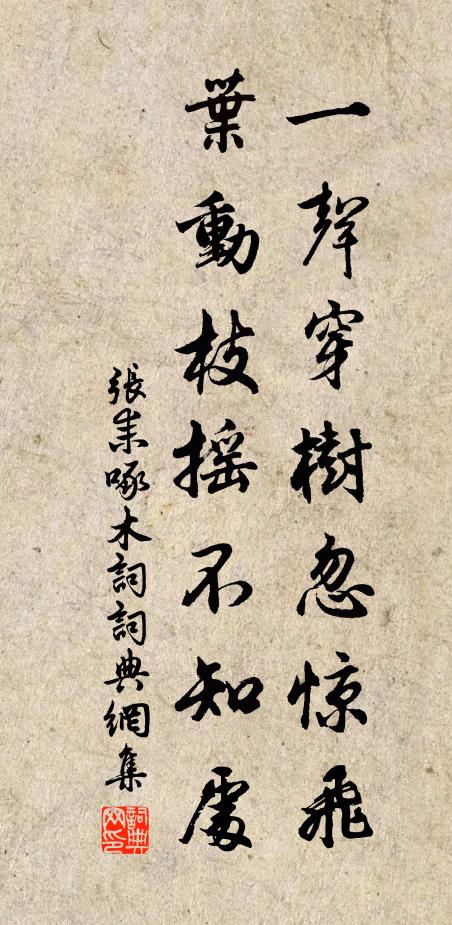 一聲穿樹忽惊飛
葉動枝摇不知處
張耒啄木詞詞典網集
詞典网印